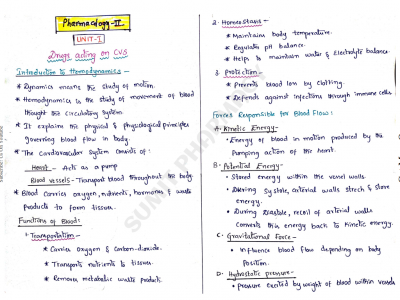 Pharmacology-II
UNIT-I
Drugs acting on CVS
Introduction to Hemodynamics -
* Dynamics means the study of motion.
* Hemodynamics is the study of movement of blood
through the circulatory system.
* It explains the physical & physiological principles
governing blood flow in body.
* The Cardiovascular System consists of:
Heart - Acts as a pump
Blood vessels - Transport blood throughout the body.
* Blood carries oxygen, nutrients, hormones & waste
products to form tissues.
Functions of Blood:
1. Transportation -
* Carries Oxygen & Carbon-dioxide.
* Transports nutrients to tissues.
* Removes metabolic waste products.
2. Homeostasis -
* Maintains body temperature.
* Regulates pH balance.
* Helps to maintain water & Electrolyte balance.
3. Protection -
* Prevents blood loss by clotting.
* Defends against infections through immune cells.
Forces Responsible for Blood Flow:
A. Kinetic Energy -
* Energy of blood in motion produced by the
Pumping action of the heart.
B. Potential Energy -
* Stored energy within the vessel walls.
* During Systole, arterial walls strech & store
energy.
* During Diastole, recoil of arterial walls
Converts this energy back to Kinetic energy.
C. Gravitational Force -
* Influence blood flow depending on body
Position.
D. Hydrostatic pressure -
* pressure exerted by weight of blood within vessels